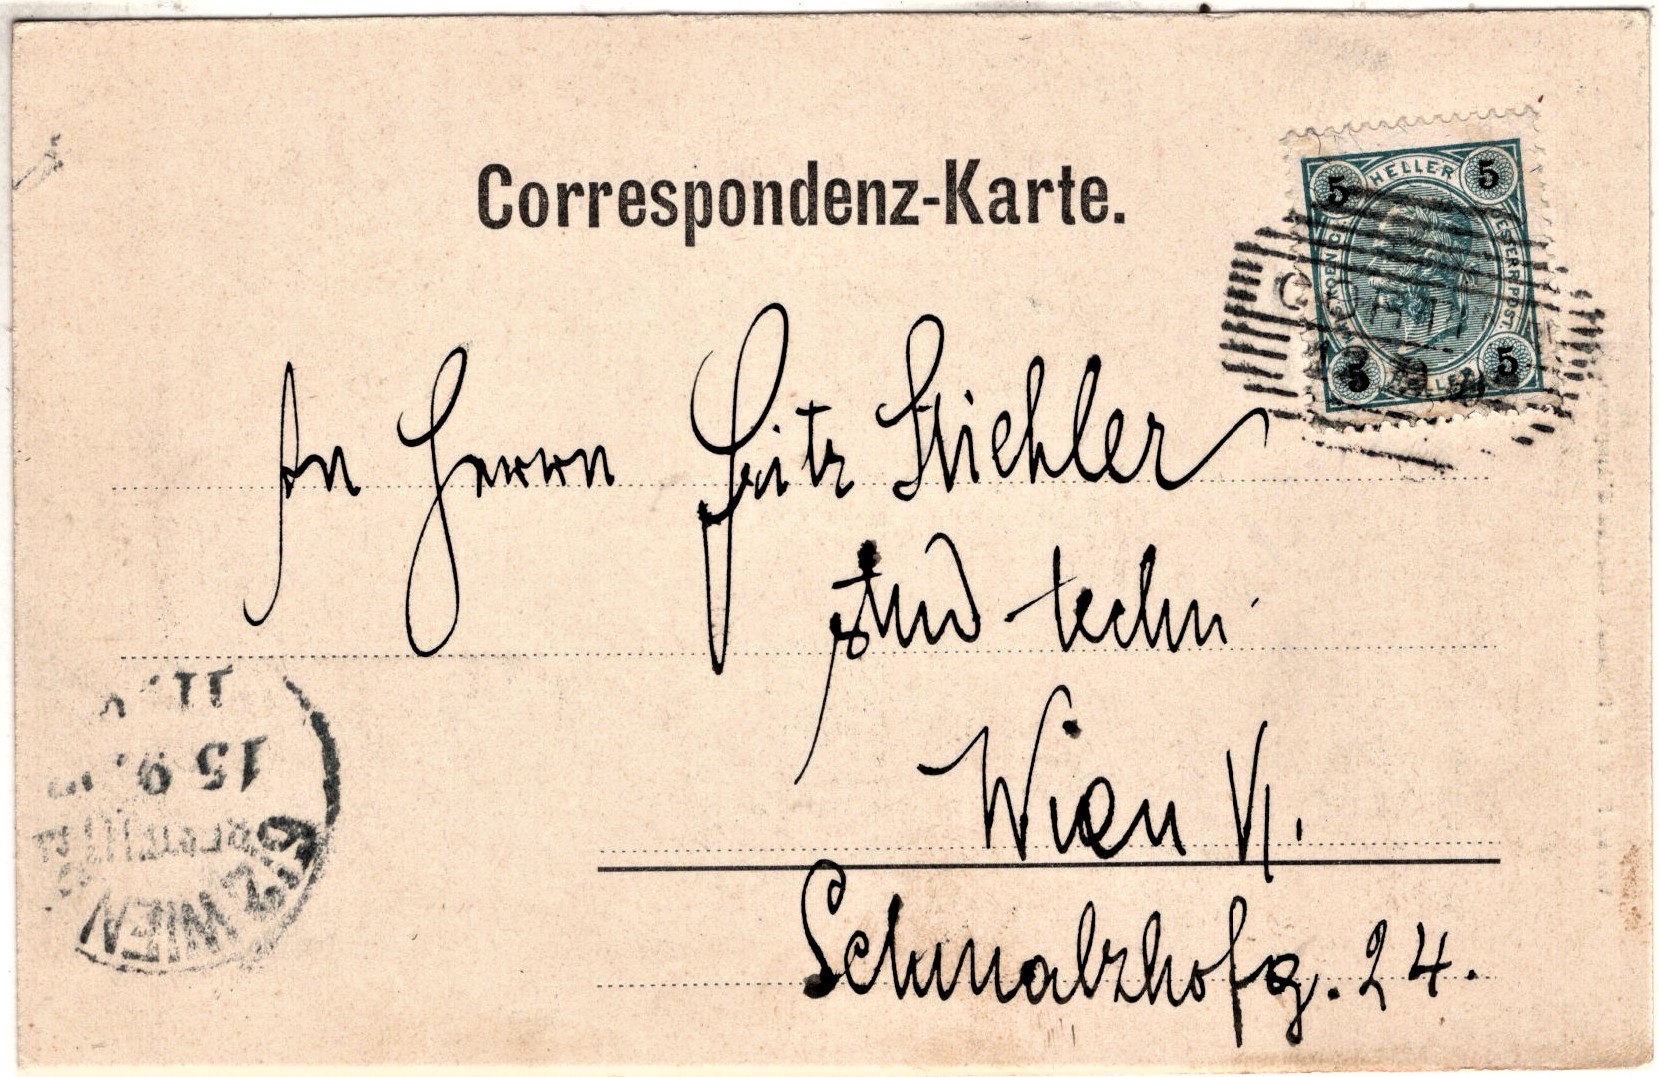 Correspondenz-Karte.
5 HELLER 5
5 HELLER 5
An Herrn Fritz Stiehler
stud techn.
Wien VI.
Schmalzhofg. 24.
15 9
WIEN